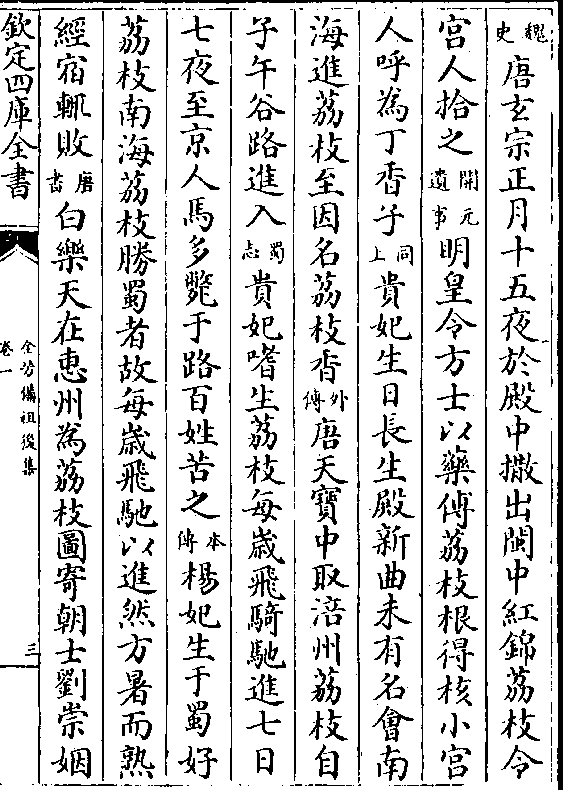 魏史唐玄宗正月十五夜於殿中撒出閩中紅錦荔枝令
宫人拾之開元遺事明皇令方士以藥傅荔枝根得核小宫
人呼為丁香子同上貴妃生日長生殿新曲未有名會南
海進荔枝至因名荔枝香外傳唐天寶中取涪州荔枝自
子午谷路進入蜀志貴妃嗜生荔枝每歲飛騎馳進七日
七夜至京人馬多斃于路百姓苦之本傳楊妃生于蜀好
荔枝南海荔枝勝蜀者故每歲飛馳以進然方暑而熟
經宿輒敗唐書白樂天在惠州為荔枝圖寄朝士劉崇姻
欽定四庫全書
全芳備祖後集
卷一
三